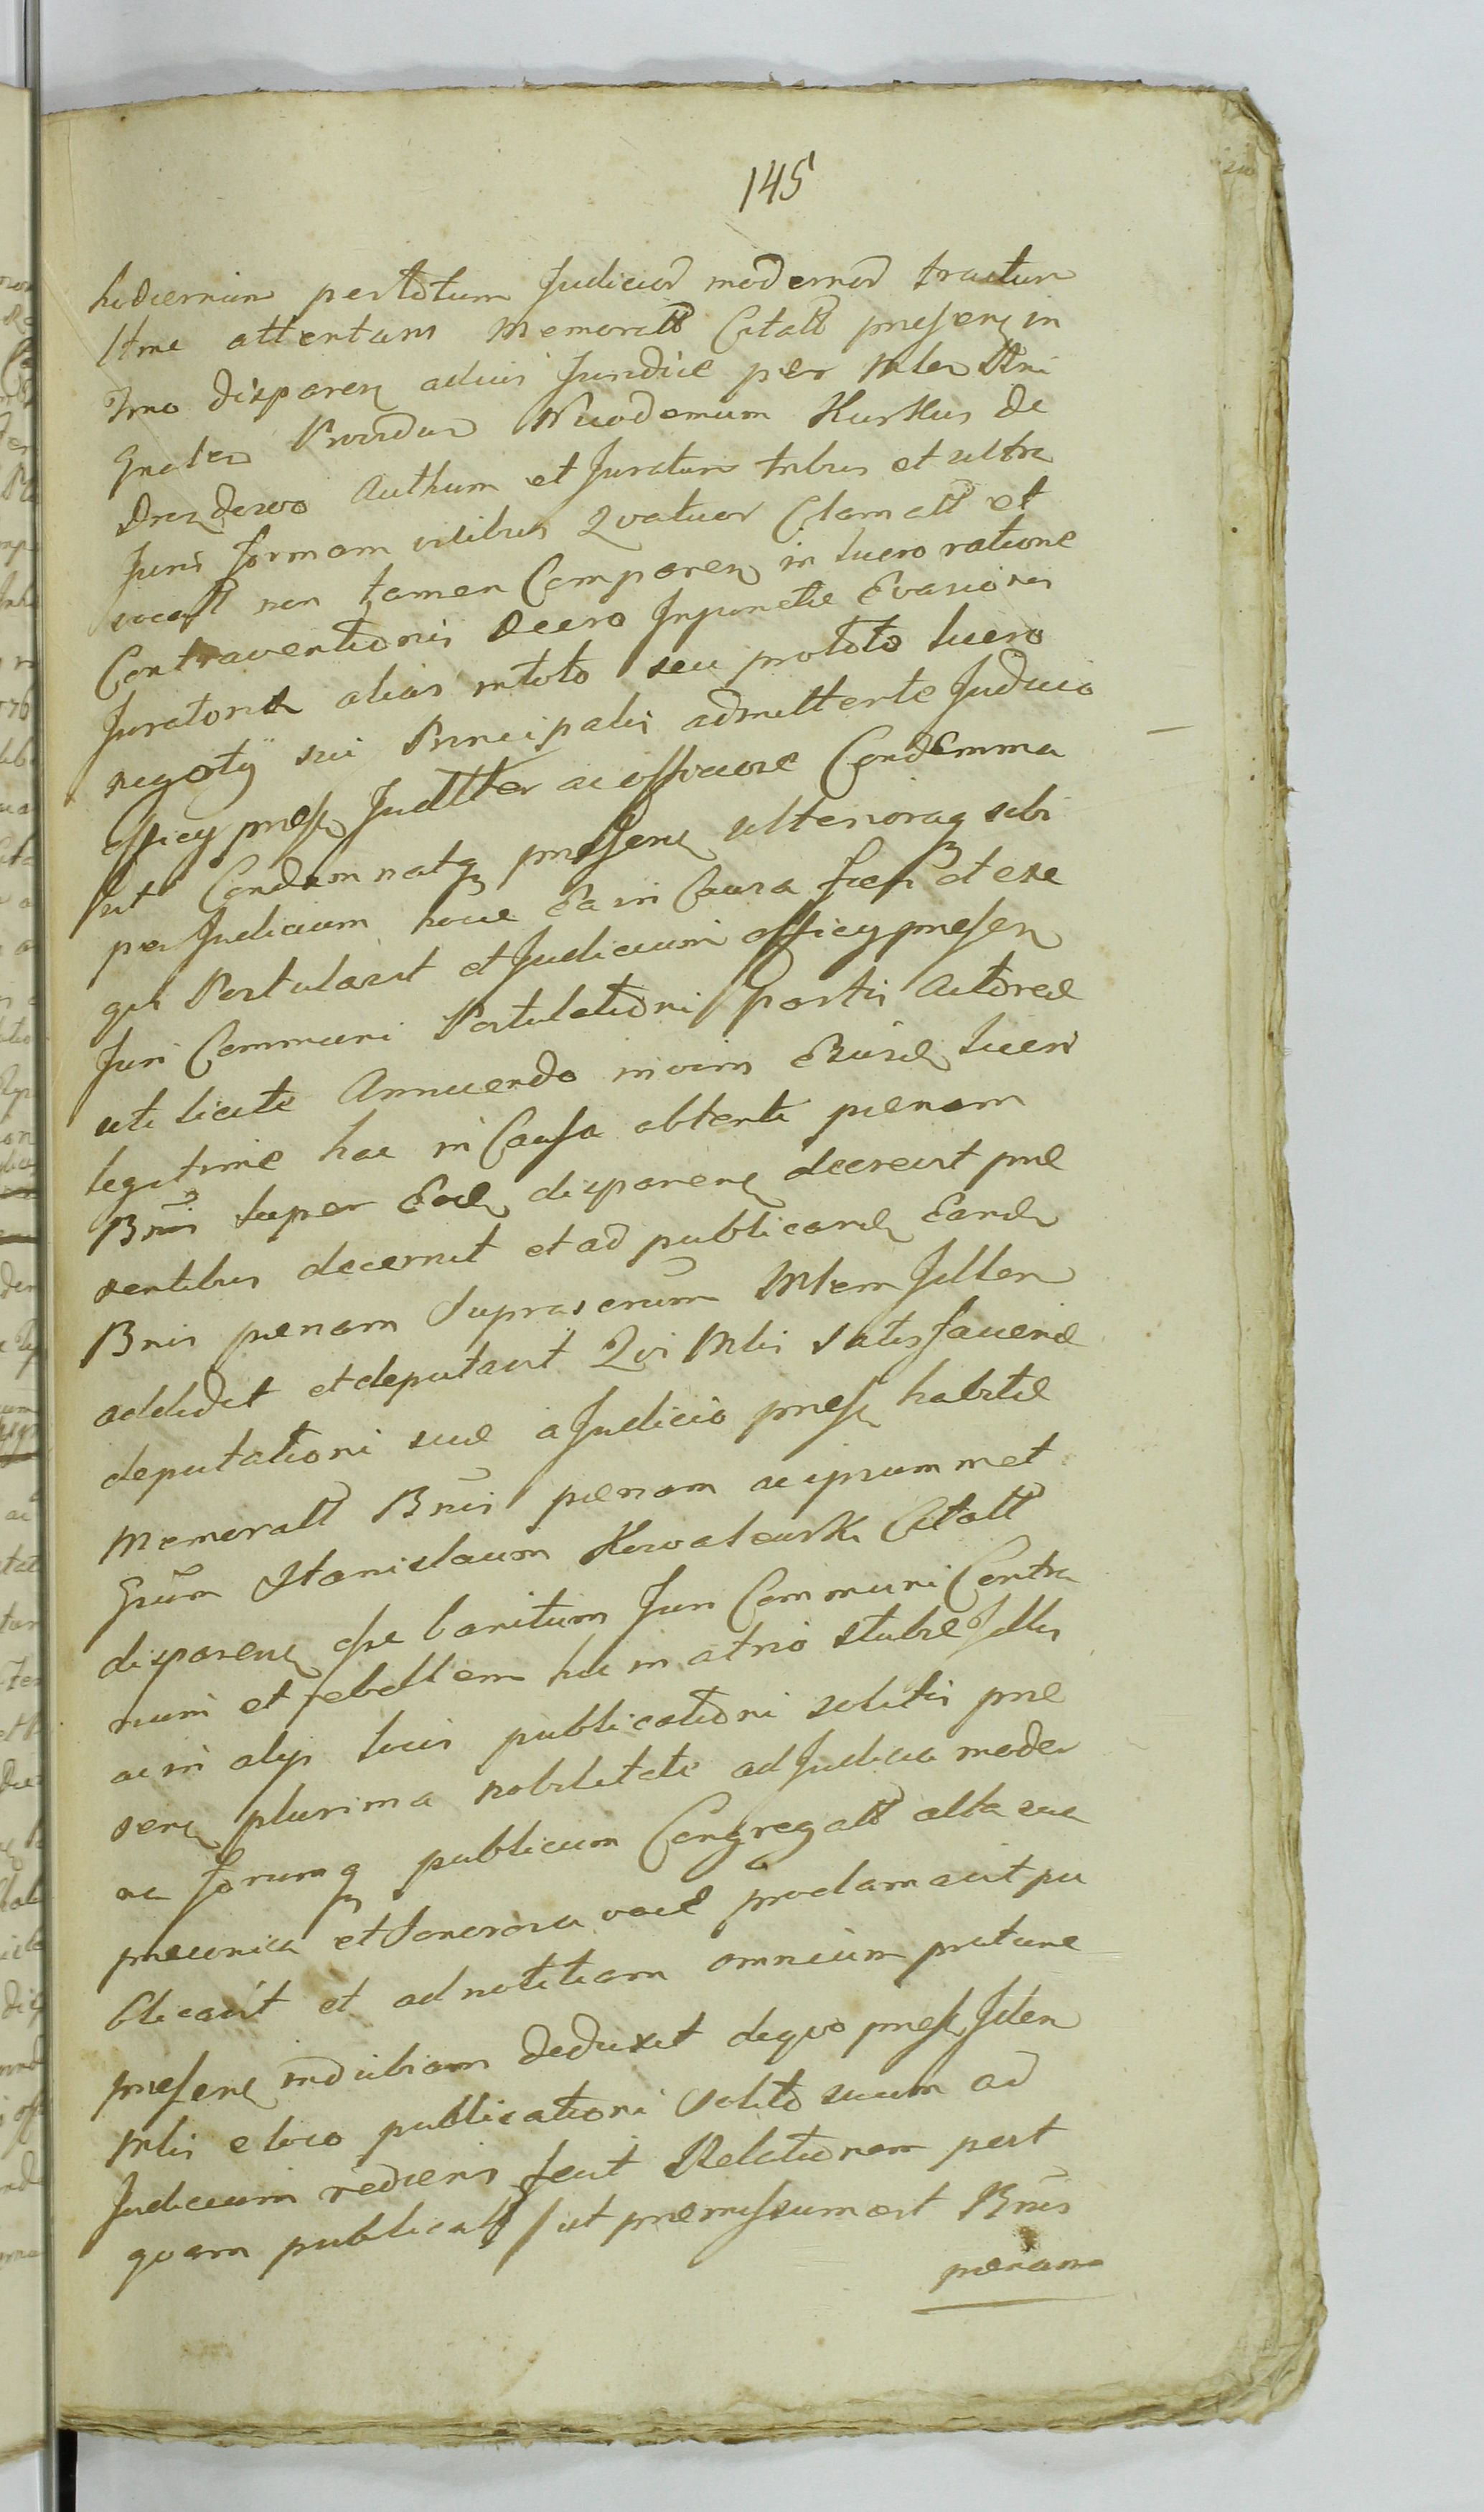 145
hodiernum per totum Judicior modernor tractum
Itme attentam Memoratt Citatt presen in
Trno disparen adius Juridice per Mlem Rni
Gnalem Providum Nicodemum Kurkus de
Drozdowo Authum et Juratum tribus et ultra
Juris formam vicibus Quatuor Clamatt et
vocatt non tamen Comparen in lucro ratione
Contraventionis Decreto Injunctae Evasionis
Juratoriae alias in toto seu pro toto lucro
negotij sui Principalis admittente Judicio
Officij presen Judltter ac officiose Condemna
vit Condemnatq presen ulterioraq sibi
per Judicium hocce Ea in Causa fieri et exe
qui Postulavit et Judicium officij presen
Juri Communi Postulationi partis Actoreae
uti licite Annuendo in vim Eiusd lucri
legitime hac in Causa obtenti paenam
Bnis super Eod disparen decrevit prae
sentibus decernit et ad publicand Eand
Bnis paenam Suprascrum Mlem Jdlem
addidit et deputavit Qui Mlis satisfaciend
deputationi suae a Judicio presen habitae
Memoratt Bnis paenam ac ipsummet
Grum Stanislaum Kowalewski Citatt
disparen esse banitum Juri Communi Contra
rium et rebellem hic in atrio stubae Jdlis
ac in alys locis publicationi solitis prae
sen plurima nobilitate ad Judicia moder
na forumq publicum Congregatt alta sua
praeconica et sonorosa voce proclamavit pu
blicavit et ad notitiam omnium
presen indubiam deduxit de quo presen Iden
Mlis e loco publicationi solito suum ad
Judicium rediens fecit Relationem post
quam publicatt ut praemissum est Bnis
paenam